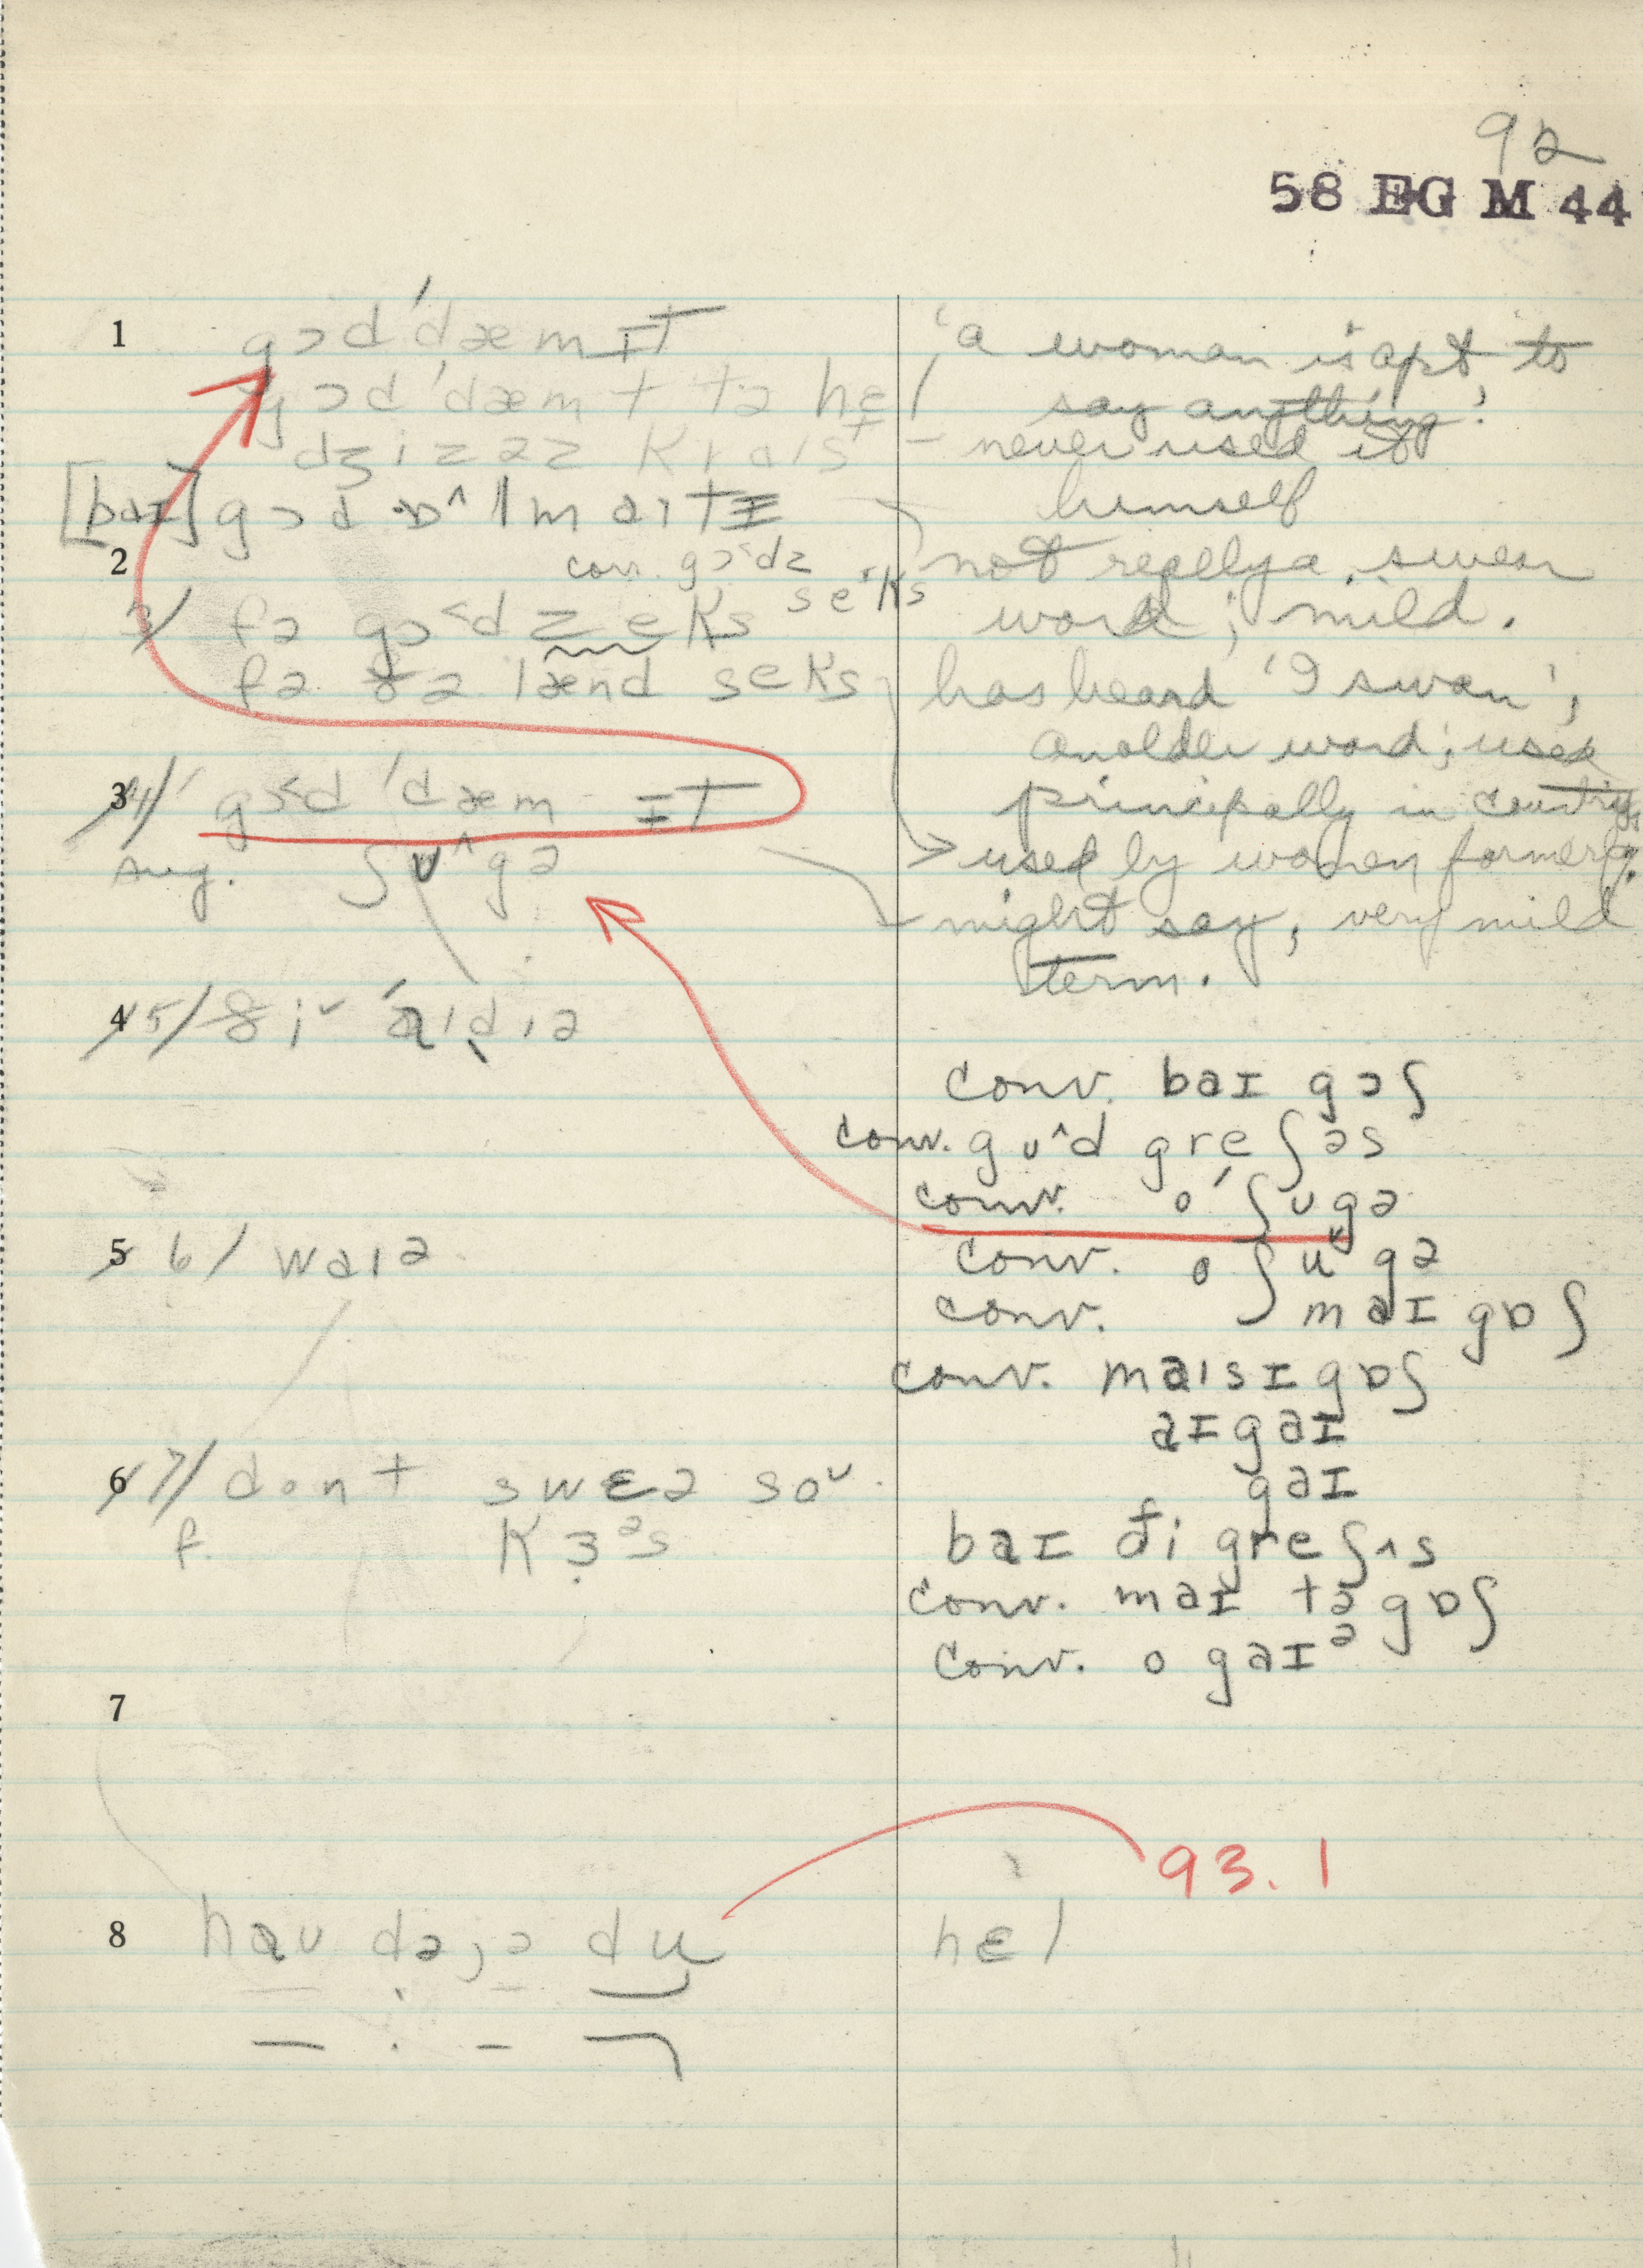 92
58 EG M 44
1 gɔd ˈdæm ɪT
gɔd ˈdæm t tə hɛl
dʒizəz kraɪst
[baɪ] gɔd ɒ^lmaɪtɪ
2 conv. gɔ˂dz seˑks
3/ fə gɔ˂dz eks
fə ðə lænd seks
3 4/ gɔ˂d ˈdæm ɪT
sug. ʃʊ^gə
4 5/ ði˅ ˈaɪdɪə
5 6/ waɪə
6 7/ dont swɛə so˅
f. kɜᵊs
7
8 haʊ dəjə du
'a woman is apt to
say anything'
– never used it
himself
not really a swear
word; mild.
has heard 'I swan',
an older word; used
principally in country.
→ used by women formerly.
might say, very mild
term.
conv. baɪ gɔʃ
conv. gʊ^d greʃəs
conv. oˈʃʊgə
conv. oʃu˅gə
conv. maɪ gɒʃ
conv. maɪsɪgɒʃ
aɪgaɪ
gaɪ
baɪ ði greʃʌs
conv. maɪ tə gɒʃ
conv. o gaɪᵊ
93.1
hɛl